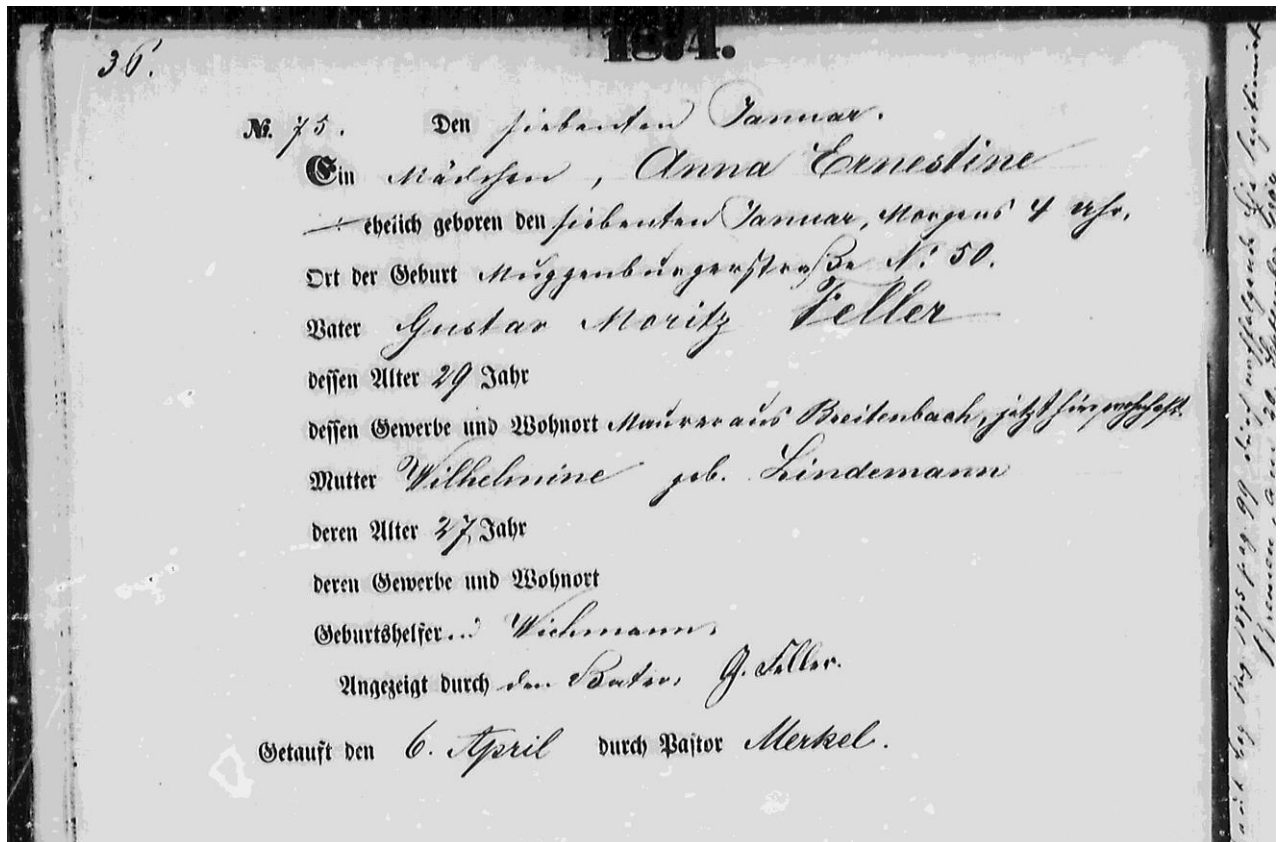 36.
1874.
No. 75. Den siebenten Januar.
Ein Mädchen, Anna Ernestine
ehelich geboren den siebenten Januar, Morgens 4 Uhr.
Ort der Geburt Muggenburgerstraße No. 50.
Vater Gustav Moritz Feller
dessen Alter 29 Jahr
dessen Gewerbe und Wohnort Maurer aus Breitenbach, jetzt hier wohnhaft.
Mutter Wilhelmine geb. Lindemann
deren Alter 27 Jahr
deren Gewerbe und Wohnort
Geburtshelferin Wichmann.
Angezeigt durch den Vater. G. Feller.
Getauft den 6. April durch Pastor Merkel.
laut Reg. 1875 pag. 99 durch nachfolgende Ehe legitimirt
Bremen, am 20. September